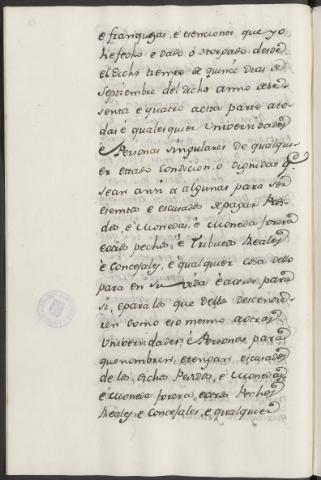 e franquezas, è esenciones que yo
he fecho e dado, ó otorgado desde
el dicho tiempo de quince dias de
septiembre del dicho anno de se
senta e quatro acita parte a to
das e qualesquier Univercidades
e Personas singulares de qualqui
er estado condicion, o dignidat q
sean assi a algunas para ser
esemtos e escusados de pagar Pedi
dos, e Monedas, è Moneda forera
e otros pechos, è Tributos Reales
è Concejales, è qualquier cosa dello
para en su vida è a otros para
si, e para los que dellos descendie
ren como eso mesmo a otras
Univercidades, è Personas, para
que nombren, e tengan escusados
de los dichos Pedidos, è Monedas
è Moneda forera, e otros Pechos
Reales, e Concejales, e qualquier